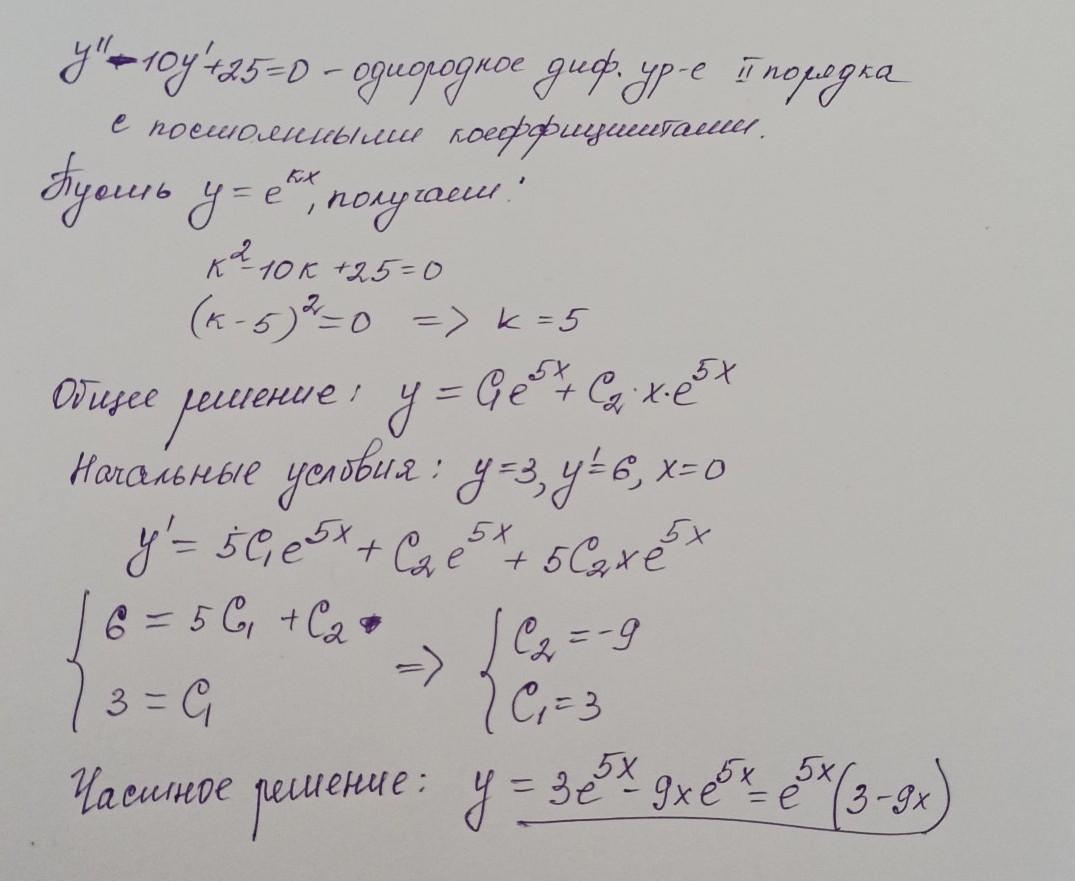 y'' - 10y' + 25 = 0 – однородное диф. ур-е II порядка
с постоянными коэффициентами.
Пусть y = e^{kx}, получаем:
k² - 10k + 25 = 0
(k - 5)² = 0 => k = 5
Общее решение: y = C₁e^{5x} + C₂·x·e^{5x}
Начальные условия: y = 3, y' = 6, x = 0
y' = 5C₁e^{5x} + C₂e^{5x} + 5C₂xe^{5x}
{ 6 = 5C₁ + C₂ => { C₂ = -9
{ 3 = C₁ { C₁ = 3
Частное решение: y = 3e^{5x} - 9xe^{5x} = e^{5x}(3 - 9x)